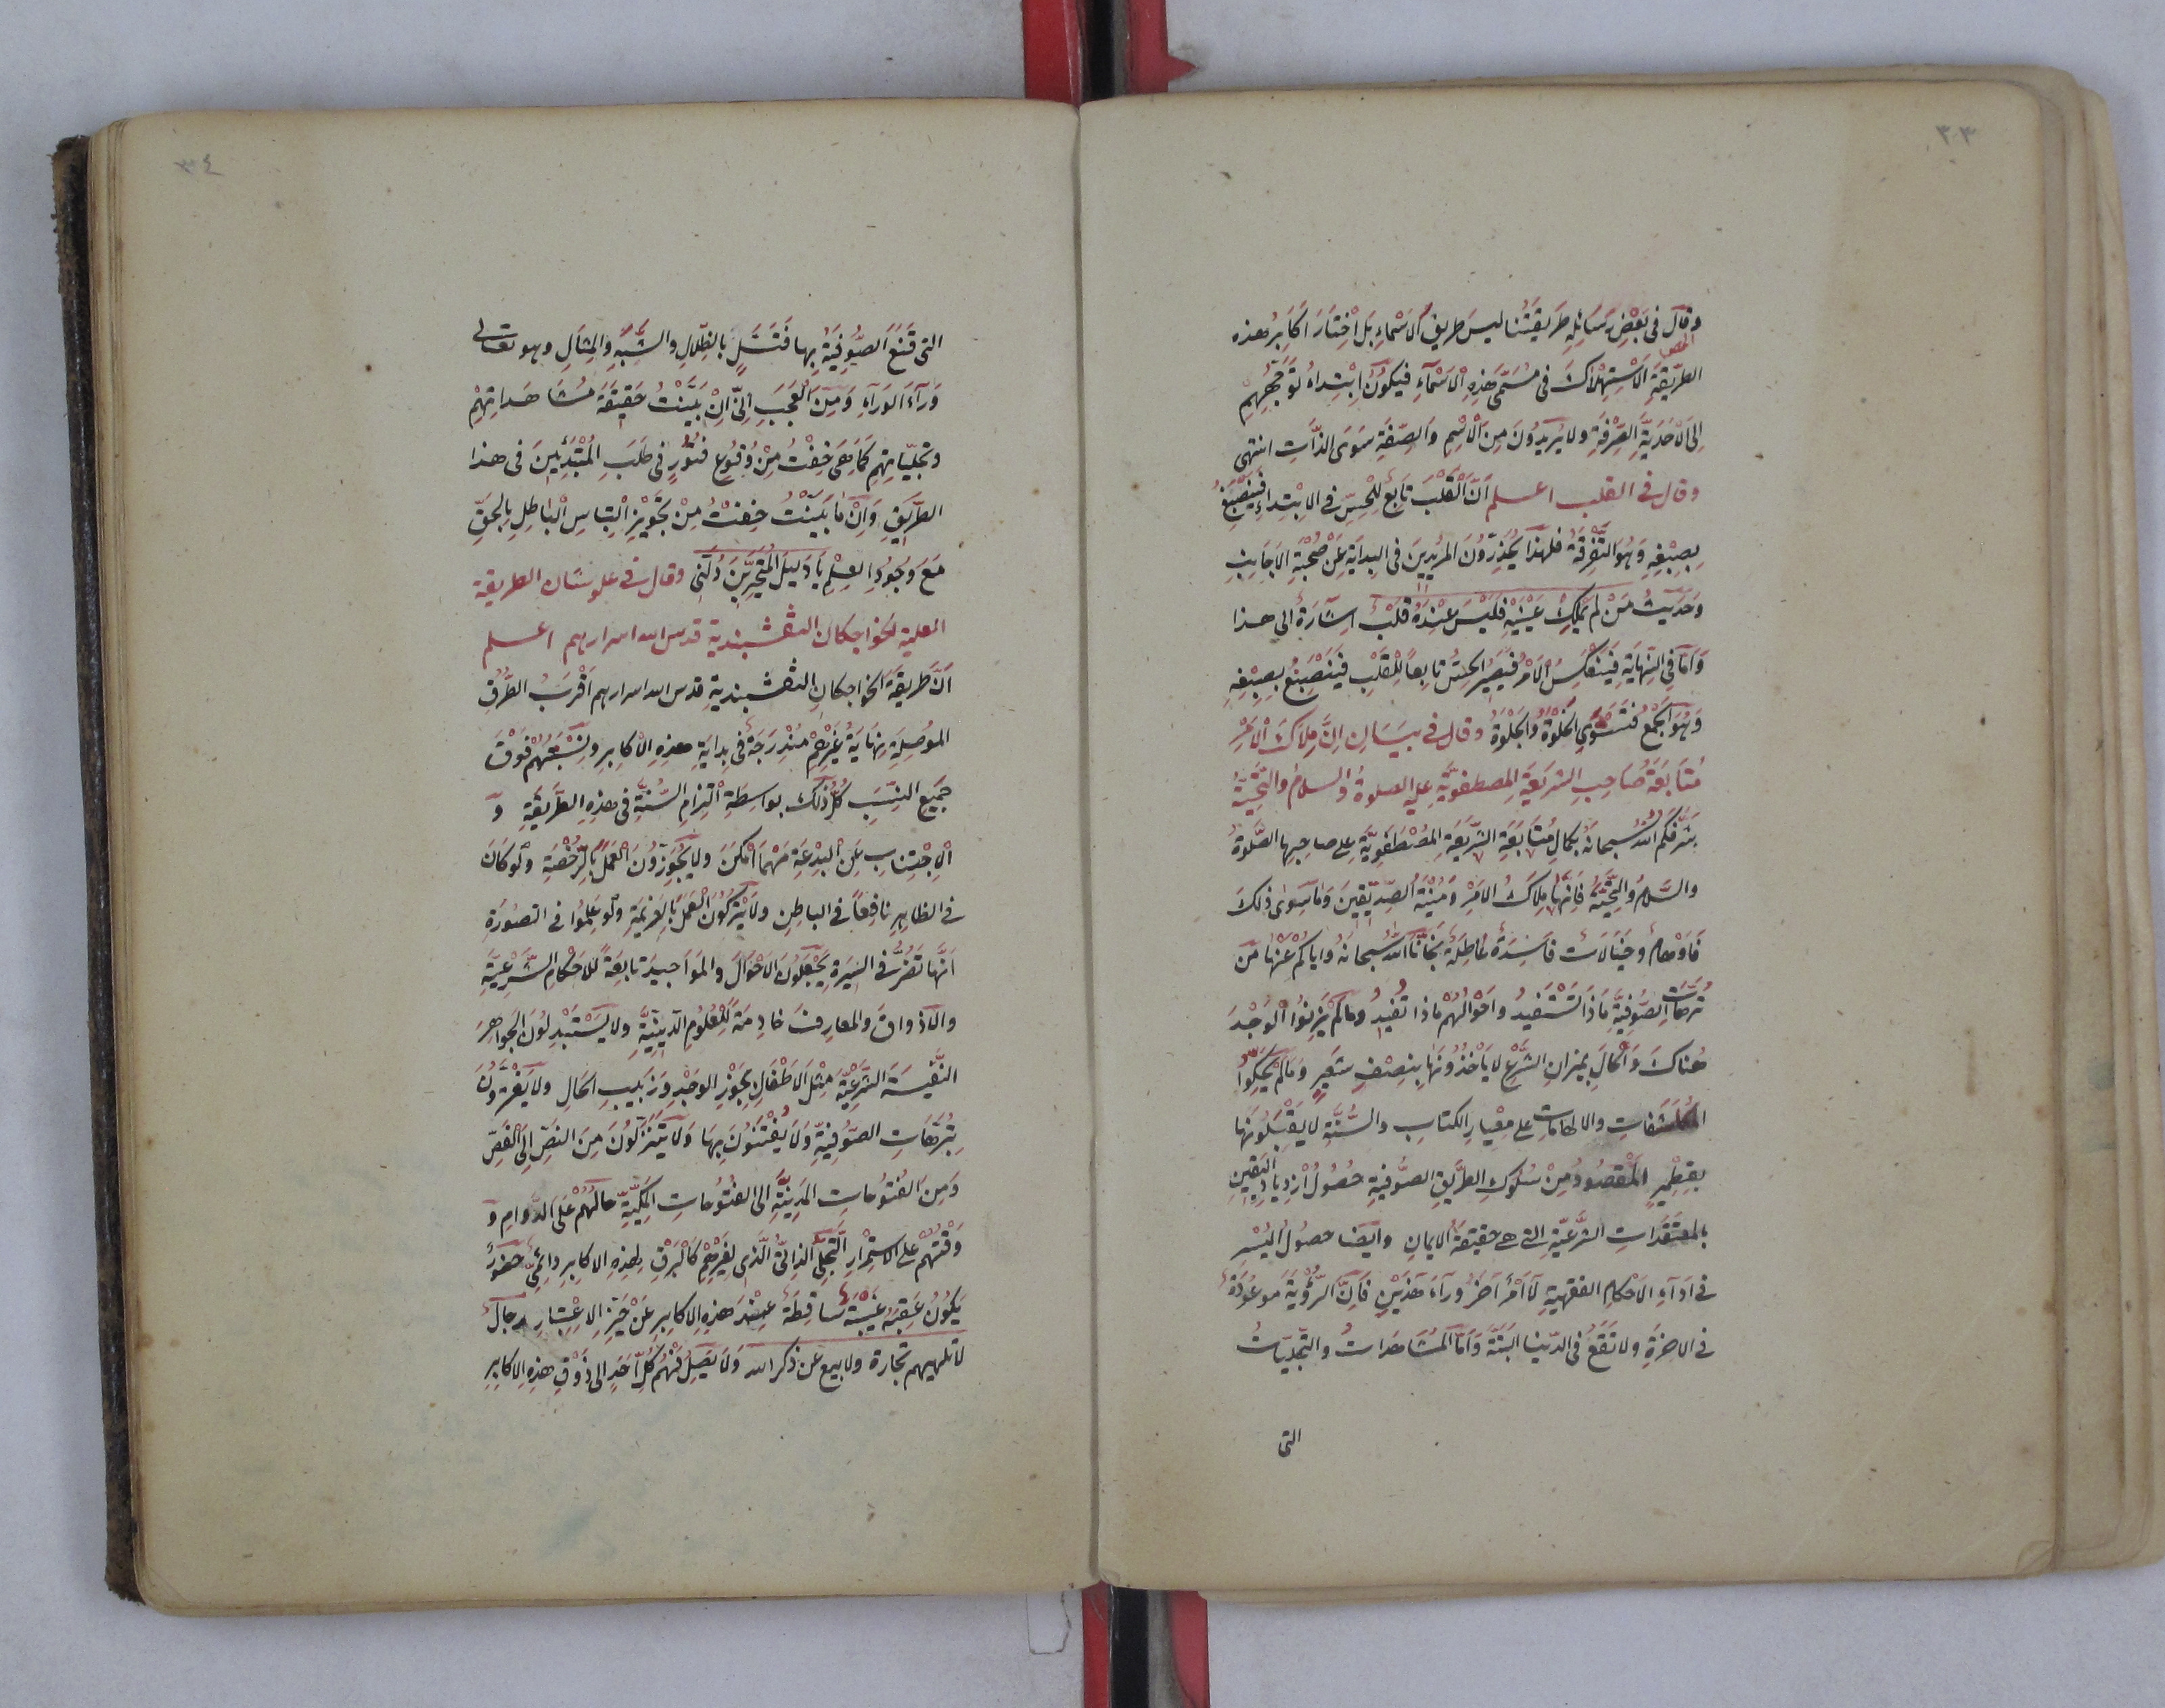 ٣٣
وقال في بَعْضِ رَسَائِلِهِ طَرِيقَتُنا ليسَ طريقُ الاَسْماءِ بَلْ اخْتَارَ اَكَابِرُ هذه
الطَّرِيقَةِ الاِسْتِهْلاَكَ في مُسَمَّى هَذِهِ الاَسْمَآءِ فيكُونُ اِبْتِداءُ تَوَجُّهِهِمْ
اِلى الاَحَدِيَّةِ الصِّرْفَةِ ولا يُرِيدُونَ مِنَ الاِسْمِ وَالصِّفَةِ سَوَى الذَّاتِ انتهى
وقال في القلب اعلم اَنَّ الْقَلْبَ تَابِعٌ لِلْحِسِّ في الابْتِداءِ فَيَنْصَبِغُ
بِصِبْغِهِ وَهُوَ التَّفْرِقَةُ فلهذا يُحَذِّرُونَ المرُيدِينَ في البِدايَةِ عَنْ صُحْبَةِ الاَجَانِبِ
وَحَدِيثُ مَنْ لَمْ يَمْلِكْ عَيْنَيْهِ فَلَيْسَ عِنْدَهُ قَلْبٌ اِشَارَةٌ الى هذا
وَاَمَّا في النِّهايَةِ فَيَنْعَكِسُ الاَمْرُ فَيَصِيرُ الحِسُّ تابِعاً لِلْقَلْبِ فَيَنْصَبِغُ بِصِبْغِهِ
وَهُوَ الجَمْعُ فَتَسْتَوِي الخَلْوَةُ وَالجَلْوَةُ وقال في بَيَانِ اِنَّ مِلاَكَ الاَمْرِ
مُتَابَعَةُ صَاحِبِ الشريعَةِ المصطفويَّةِ عليه الصلوةُ والسلامُ والتَّحِيَّةُ
شَرَّفَكُمُ اللهُ سُبحانَهُ بِكَمالِ مُتَابَعَةِ الشَّرِيعَةِ المُصْطَفَوِيَّةِ على صاحبِها الصَّلوةُ
والسَّلامُ والتَّحِيَّةُ فَاِنَّها مِلاَكُ الاَمْرِ وَمُنْيَةُ الصِّدِّيقِينَ وَمَا سِوى ذلِكَ
فَاَوْهامٌ وخَيَالاَتٌ فاسِدَةٌ بَاطِلَةٌ نَجَّانَا اللهُ سُبحانهُ واياكُمْ عنْهَا مِن
تُرَّهَاتِ الصُّوفِيَّةِ مَاذَا تَسْتَفيدُ وَاحْوَالُهُمْ مَاذا تُفيدُ ومالَمْ يَزِنُوا الْوَجْدَ
هُناكَ وَالحَالَ بميزانِ الشَّرْعِ لا يَاْخُذُونَها بنِصْفِ شَعِيرٍ وَمَالَمْ يَحُكُّوا
المُكَاشَفاتِ والالهاماتِ على مِعْيارِ الكتابِ والسُّنَّةِ لا يَقْبَلُونَها
بقِطْميرٍ المَقْصُودُ مِنْ سُلُوكِ الطَّرِيقِ الصُّوفيةِ حُصُولُ ازْدِيادِ اليَقِينِ
بالمعتَقَداتِ الشَّرْعِيَّةِ التي هي حقيقةُ الايمانِ وايضا حصولُ اليُسْرِ
في اَدَآءِ الاَحْكامِ الفقهيةِ لاَ اَمْرٌ آخَرُ وَرَآءَ هَذَيْنِ فَاِنَّ الرُّؤْيَةَ مَوعُودَةٌ
في الاخرةِ ولا تَقَعُ في الدّنيا البَتَّةَ وَاَمّا المُشَاهَداتُ والتَّجَلِّيَاتُ
التي
٣٤
التي قَنَعَ الصُّوفِيَّةُ بِها فَتَسَلٍّ بالظِّلالِ والشَّبَهِ والمِثالِ وهو تعالى
وَرآءَ الوَرآءِ وَمِنَ العَجَبِ اَنِّي اِنْ بَيَّنْتُ حَقِيقَةَ مُشَاهَداتِهِمْ
وتجلّيَاتِهِمْ كَمَا هِيَ خِفْتُ مِنْ وُقُوعِ فُتُورٍ في طَلَبِ المُبْتَدِئينَ في هذا
الطَّرِيقِ وَاِنْ مَا بَيَّنْتُ خِفْتُ مِنْ تَجْوِيزِ الْتِباسِ الْباطِلِ بِالحقِّ
مَعَ وُجُودِ العِلْمِ يَا دَلِيلَ المُتَحَيِّرِينَ دُلَّنِي وقال في علو شان الطريقة
العلية للخواجكان النقشبندية قدس الله اسرارهم اعلم
اَنَّ طَرِيقَةَ الخواجكان النقشبنديةِ قدس الله اسرارهم اَقْرَبُ الطُّرُقِ
الموُصِلَةِ نِهايَةُ غَيْرِهِمْ مُنْدَرِجَةٌ في بِدايَةِ هذِهِ الاَكابِرِ ونِسْبَتُهُمْ فَوْقَ
جَمِيعِ النِّسَبِ كُلُّ ذلِكَ بواسِطَةِ الْتِزامِ السُّنَّةِ في هذِهِ الطَّرِيقَةِ وَ
الْاِجْتِنابِ عَنِ البِدْعَةِ مَهْمَا اَمْكَنَ ولا يُجَوِّزُونَ الْعَمَلَ بالرُّخْصَةِ وَلَو كَانَ
في الظاهِرِ نافِعاً في الباطِنِ ولا يَتْرُكُونَ العَمَلَ بِالعَزِيمَةِ ولَو عَلِمُوا في الصُورَةِ
اَنَّها تَضُرُّ في السِيرَةِ يَجْعَلُونَ الاَحْوَالَ والمَوَاجِيدَ تابِعَةً للاَحْكامِ الشَّرْعِيَّةِ
والاَذواقَ والمعارفَ خادِمَةً لِلْعُلُومِ الدِّينِيَّةِ ولا يَسْتَبْدِلُونَ الجَواهِرَ
النَّفيسَةَ الشَّرْعِيَّةَ مِثْلَ الاَطْفالِ بِجَوْزِ الوَجْدِ وَزَبِيبِ الحَالِ ولا يَغْتَرُّونَ
بِتُرَّهَاتِ الصُّوفِيَّةِ وَلاَ يُفْتَنُونَ بِهَا ولا يَتَنَزَّلُونَ مِنَ النَصِّ اِلَى الفَصِّ
وَمِنَ الفُتُوحاتِ المَدَنِيَّةِ الى الفُتُوحاتِ المَكِّيَّةِ حالُهُمْ عَلَى الدَّوامِ وَ
وَقْتُهُمْ على الاستِمْرارِ التَّجَلِّي الذاتيُّ الَّذي لغَيْرِهِمْ كَالْبَرْقِ لِهذِهِ الاكابِرِ دائِمِيٌّ حُضُورٌ
يَكُونُ عَقِبَهُ غَيْبَةٌ سَاقِطَةٌ عِنْدَ هذِهِ الاَكابِرِ عَنْ حَيِّزِ الاِعْتِبارِ رِجالٌ
لا تلهيهم تجارة ولا بيع عن ذكر الله وَلاَ يَصِلُ فَهْمُ كُلِّ اَحَدٍ الى ذَوْقِ هذِهِ الاكابِرِ